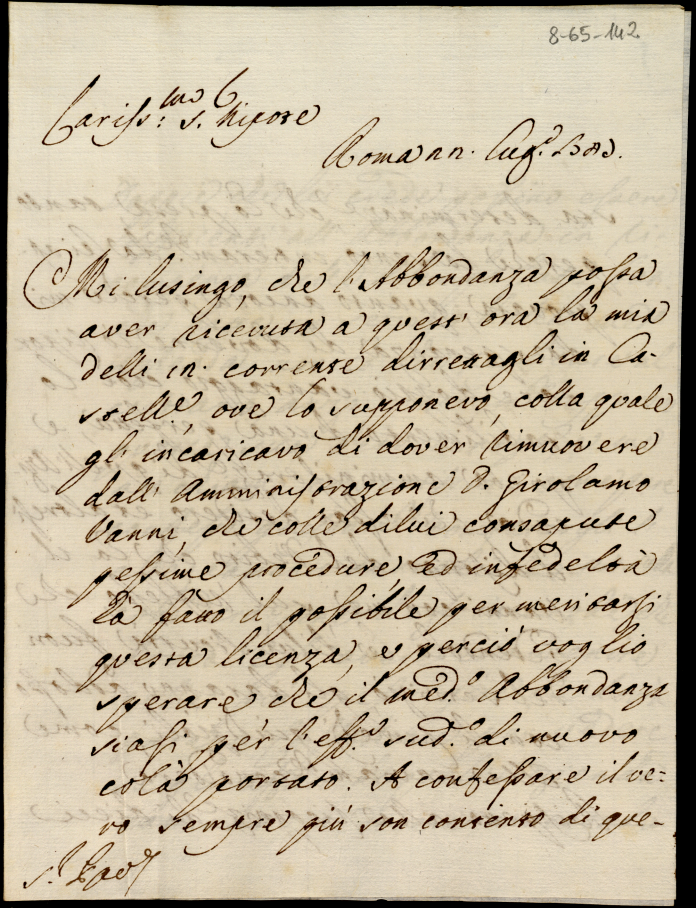 8-65-142
Cariss:mo S. Nipote
Roma 22. Lug.o
Mi lusingo, che l'Abbondanza possa
aver ricevuta a quest'ora la mia
delli corrente dirretagli in Ca-
stello, ove lo supponevo, colla quale
gl'incaricavo di dover rimuovere
dall'Amministrazione D. Girolamo
Vanni, che colle di lui consapute
pessime procedure, ed infedeltà
hà fatto il possibile per meritarsi
questa licenza, e perciò voglio
sperare che il med.o Abbondanza
siasi per l'eff.o sud.o di nuovo
colà portato. A confessare il ve=
ro sempre più son contento di que-